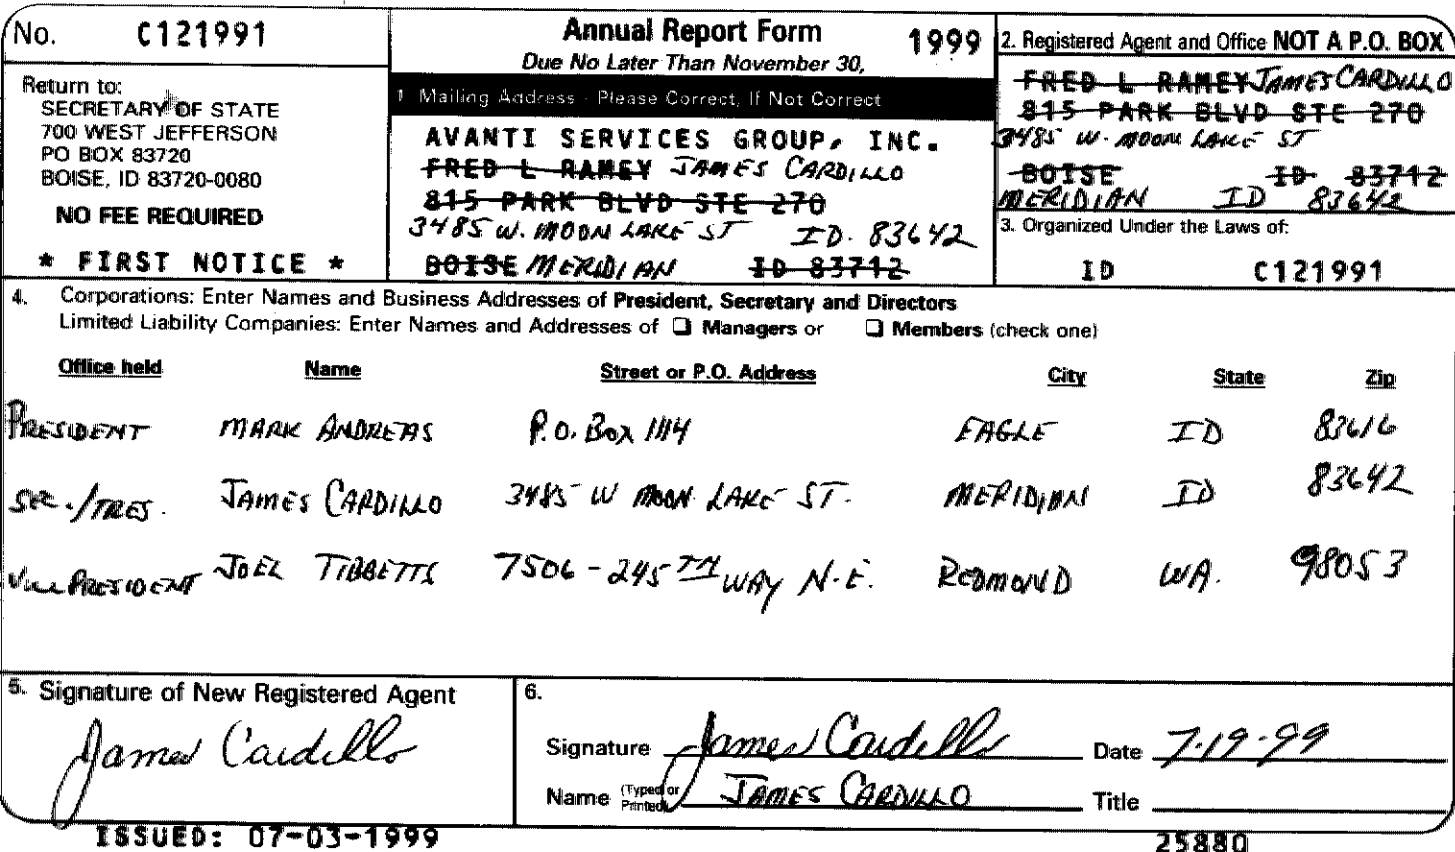 No. C121991
Return to:
SECRETARY OF STATE
700 WEST JEFFERSON
PO BOX 83720
BOISE, ID 83720-0080
NO FEE REQUIRED
* FIRST NOTICE *
Annual Report Form 1999
Due No Later Than November 30,
1 Mailing Address - Please Correct, If Not Correct
AVANTI SERVICES GROUP, INC.
FRED L RAMEY JAMES CARDILLO
815 PARK BLVD STE 270
3485 W. MOON LAKE ST ID. 83642
BOISE MERIDIAN ID 83712
2. Registered Agent and Office NOT A P.O. BOX
FRED L RAMEY JAMES CARDILLO
815 PARK BLVD STE 270
3485 W. MOON LAKE ST
BOISE ID 83712
MERIDIAN ID 83642
3. Organized Under the Laws of:
ID C121991
4. Corporations: Enter Names and Business Addresses of President, Secretary and Directors
Limited Liability Companies: Enter Names and Addresses of ❑ Managers or ❑ Members (check one)
Office held Name Street or P.O. Address City State Zip
PRESIDENT MARK ANDREAS P.O. Box 1114 EAGLE ID 83616
SEC./TRES. JAMES CARDILLO 3485 W MOON LAKE ST. MERIDIAN ID 83642
VICE PRESIDENT JOEL TIBBETTS 7506 - 245TH WAY N.E. REDMOND WA. 98053
5. Signature of New Registered Agent
James Cardillo
6.
Signature James Cardillo Date 7-19-99
Name (Typed or Printed) JAMES CARDILLO Title
ISSUED: 07-03-1999 25880